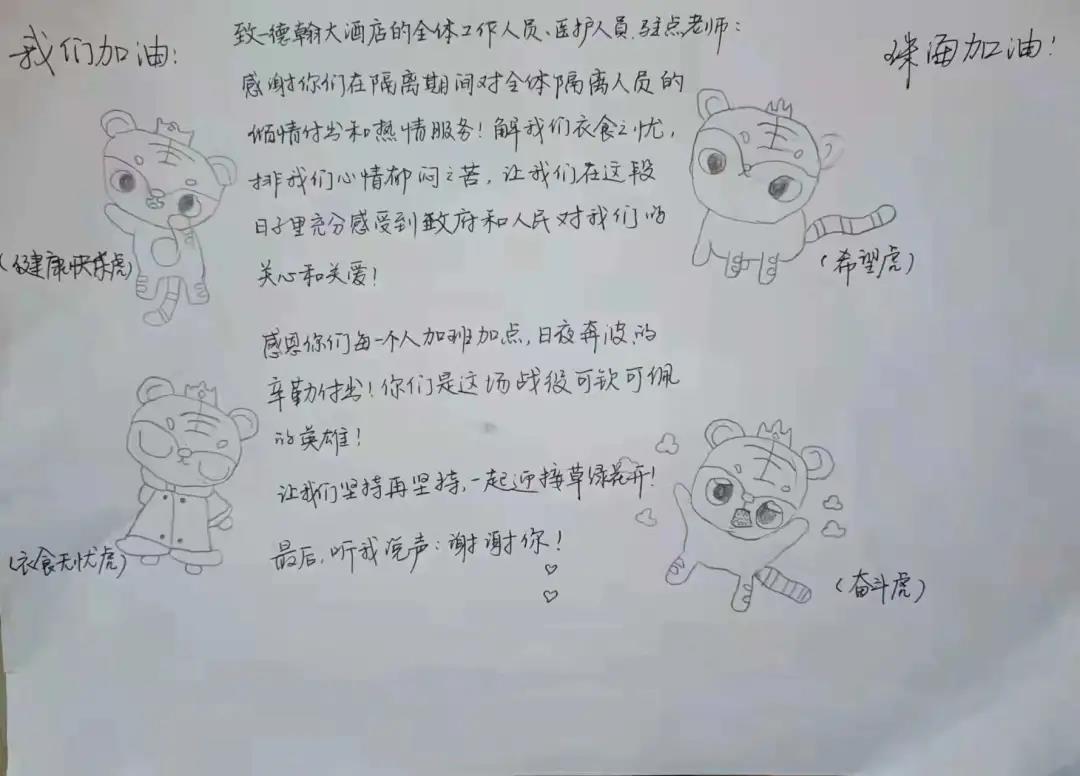 我们加油:
致一德翰大酒店的全体工作人员、医护人员、驻点老师:
珠海加油!
感谢你们在隔离期间对全体隔离人员的
倾情付出和热情服务!解我们衣食之忧,
排我们心情郁闷之苦,让我们在这段
日子里充分感受到政府和人民对我们的
关心和关爱!
(健康快乐虎)
(希望虎)
感恩你们每一个人加班加点,日夜奔波的
辛勤付出!你们是这场战役可钦可佩
的英雄!
让我们坚持再坚持,一起迎接草绿花开!
最后,听我说声:谢谢你!
(衣食无忧虎)
(奋斗虎)